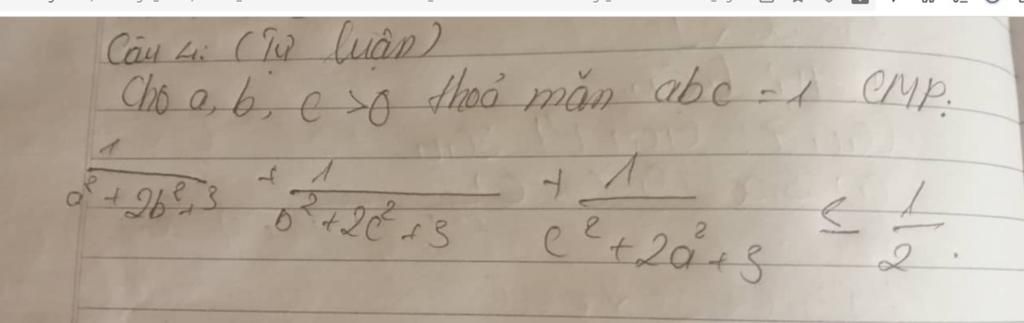 Câu 4: (Tự luận)
Cho a, b, c > 0 thoả mãn abc = 1 CMR.
1/(a² + 2b² + 3) + 1/(b² + 2c² + 3) + 1/(c² + 2a² + 3) ≤ 1/2.